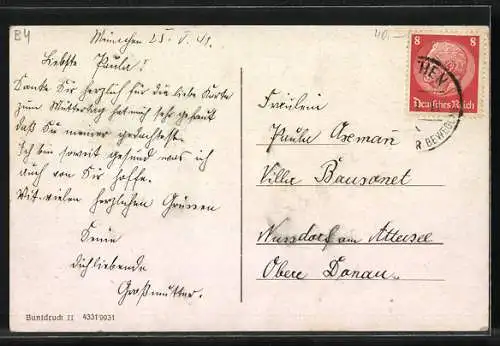 B4
München 25. V. 41.
Liebste Paula!
Danke Dir herzlich für die liebe Karte
zum Muttertag hat mich sehr gefreut
daß Du meiner gedachtest.
Ich bin soweit gesund was ich
auch von Dir hoffe.
Mit vielen herzlichen Grüssen
Deine
Dichliebende
Großmutter.
Buntdruck II 4331/0931
40.-
8 8
Deutsches Reich
HEN
R BEWEG
Fräulein
Paula Axemann
Villa Bausonet
Nussdorf am Attersee
Obere Donau.